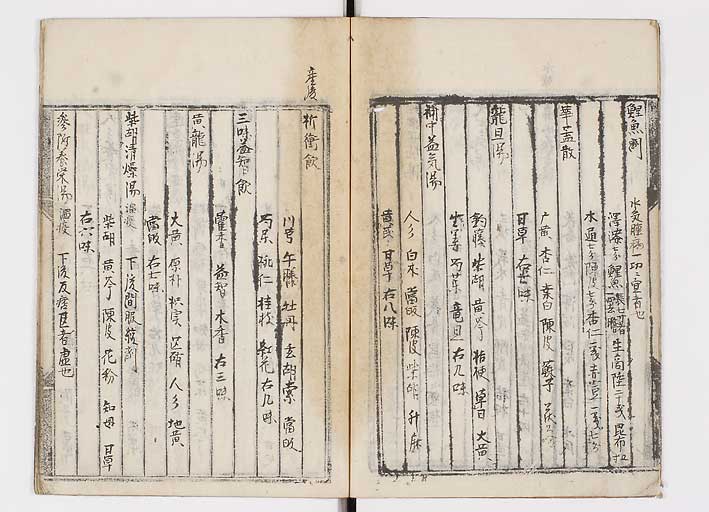 鯉魚剤
水気腫病一切ニ宜者也
澤瀉 鯉魚 生商陸二十戔 昆布
木通 陳皮 杏仁二戔 赤豆一戔
華蓋散
广黄 杏仁 桑白 陳皮 蘓子
甘草 右七味
龍旦湯
釣藤 柴胡 黄芩 桔梗 草 大黄
芍薬 竜旦 右九味
補中益気湯
人参 白朮 當皈 陳皮 柴胡 升麻
黄芪 甘草 右八味
産後
折衝飲
川芎 牛膝 牡丹 玄胡索 當皈
芍薬 桃仁 桂枝 紅花 右九味
三味益智飲
藿香 益智 木香 右三味
黄龍湯
大黄 厚朴 枳実 芒硝 人参 地黄
當皈 右七味
柴胡清燥湯 下後間服緩剤
柴胡 黄芩 陳皮 花粉 知母 甘草
右六味
参附養栄湯 下後反痞者虚也